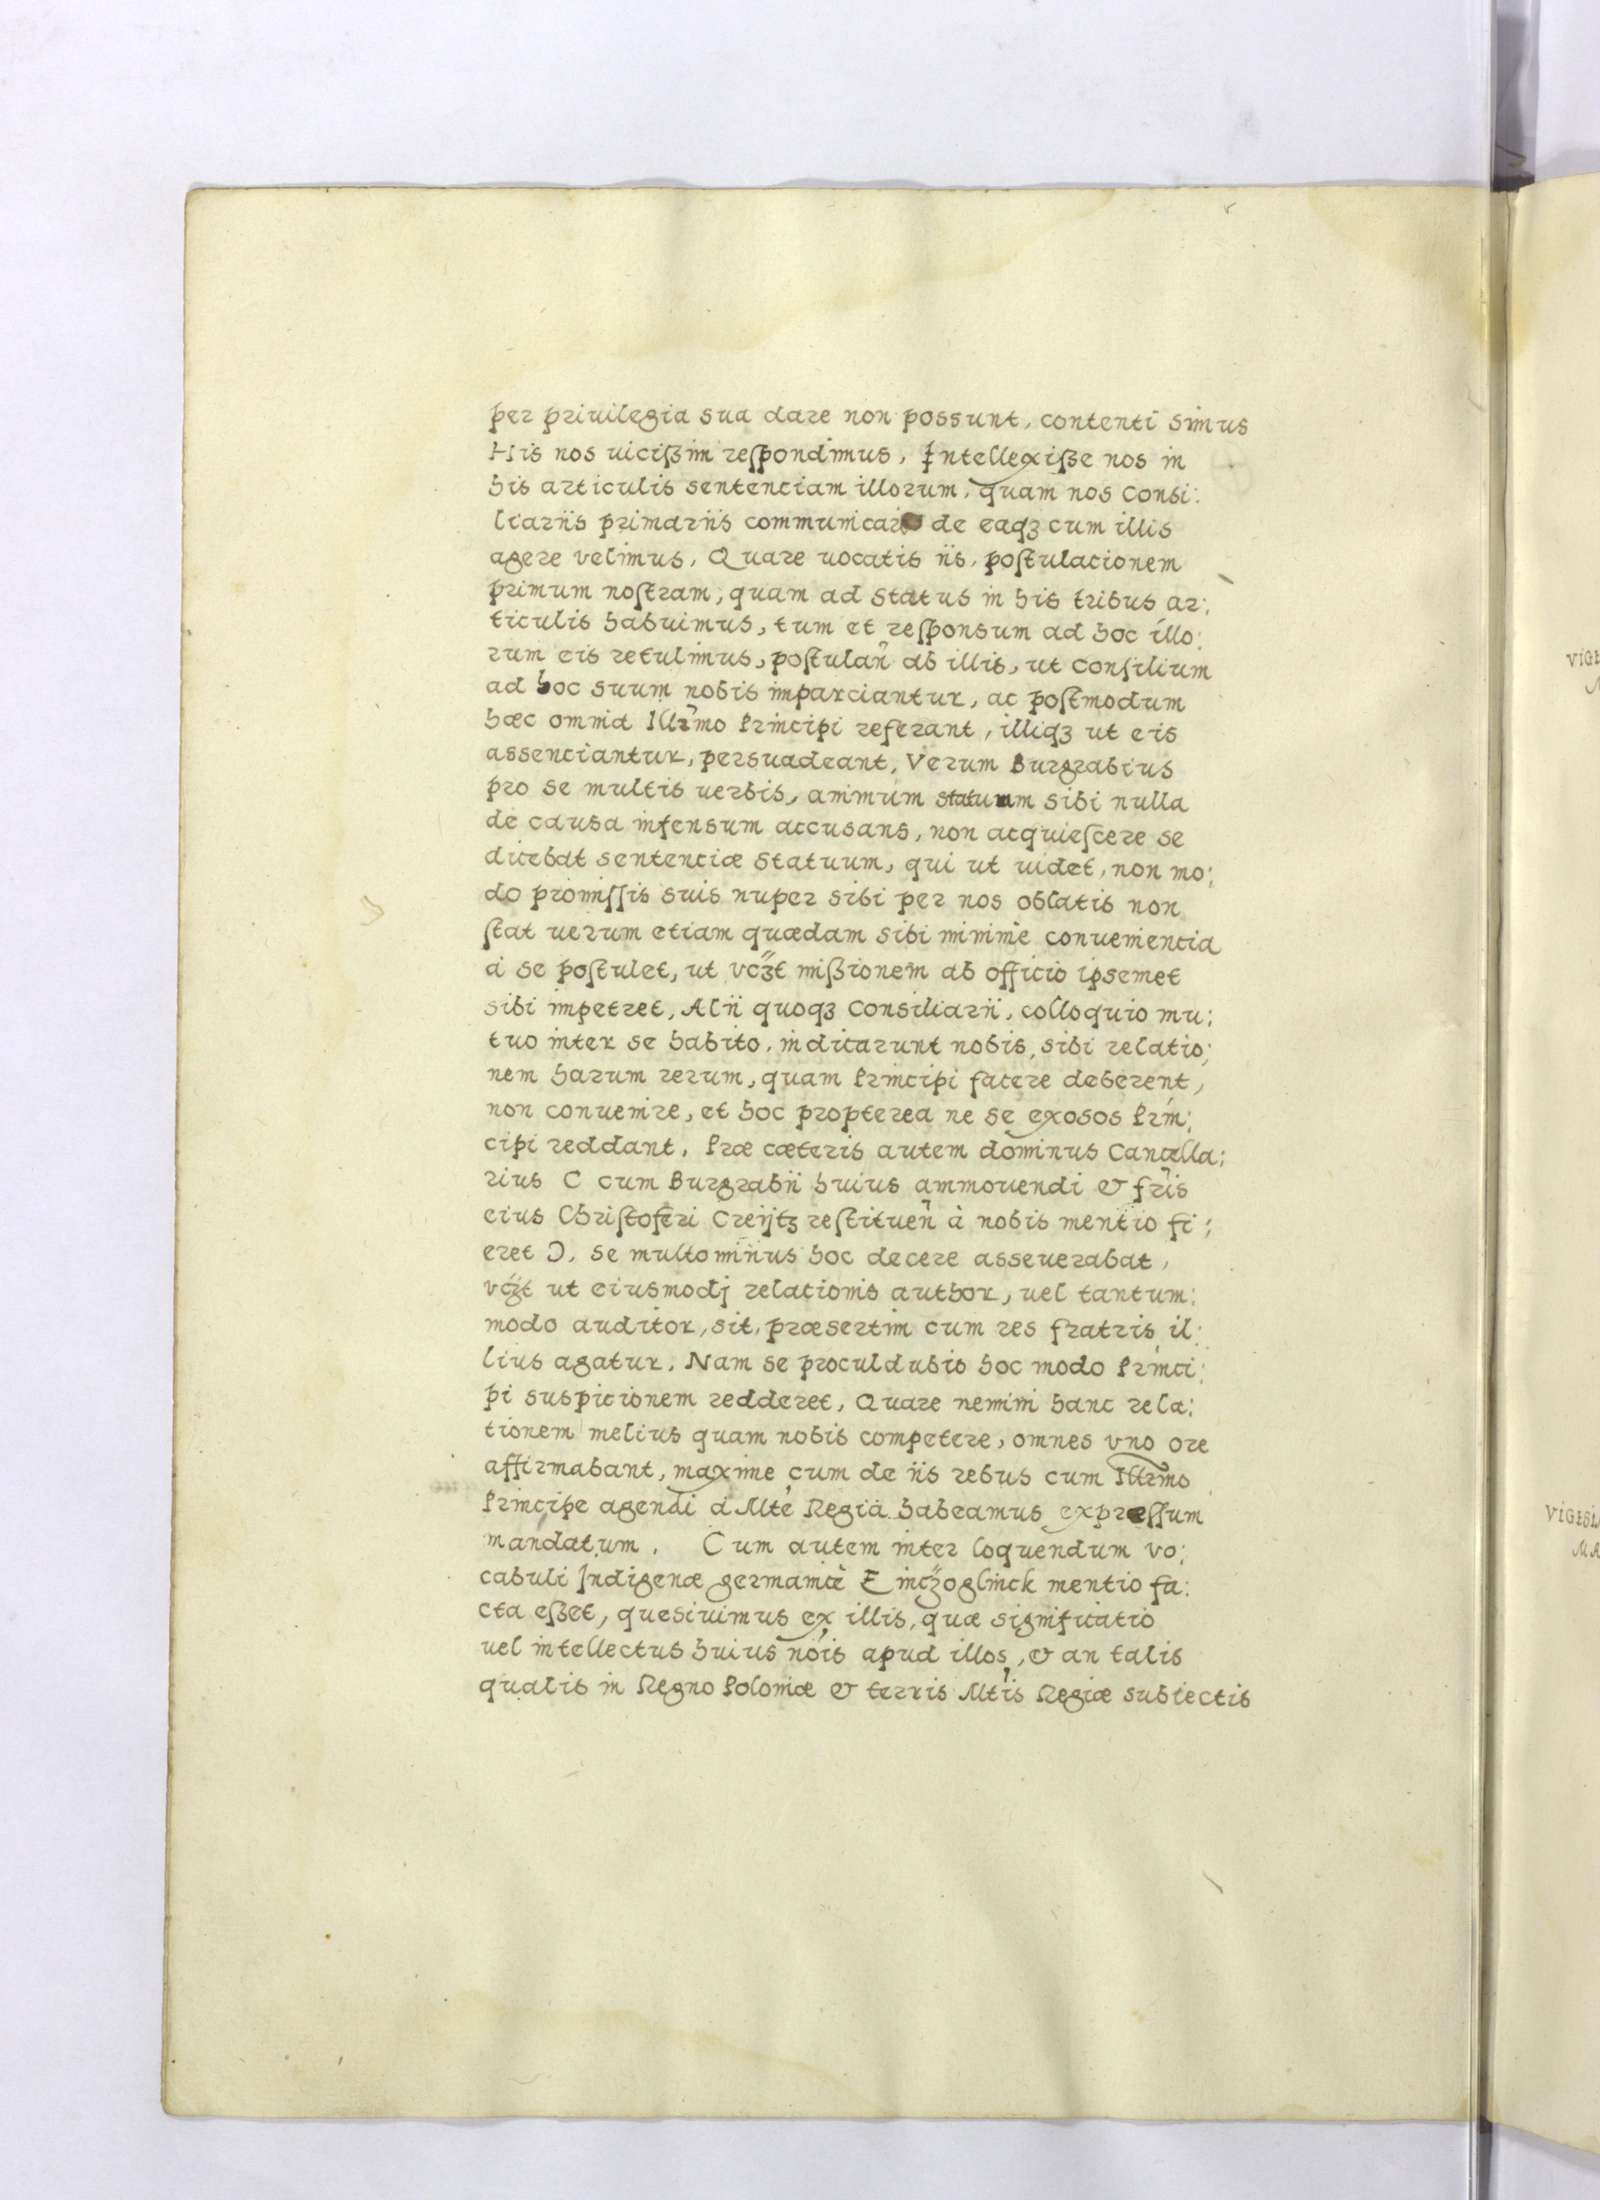 per priuilegia sua dare non possunt, contenti simus
His nos uicißim reſpondimus, Intellexiße nos in
his articulis sentenciam illorum, quam nos Consi:
liariis primariis communicare de eaqꝫ cum illis
agere velimus, Quare uocatis iis, poſtulacionem
primum noſtram, quam ad status in his tribus ar:
ticulis habuimus, tum et reſponsum ad hoc illo:
rum eis retulimus, poſtulañ ab illis, ut Conſilium
ad hoc suum nobis imparciantur, ac poſtmodum
hæc omnia Illr̃mo Principi referant, illiqꝫ ut eis
assenciantur, persuadeant, Verum Burgrabius
pro se multis uerbis, animum statuum sibi nulla
de causa infensum accusans, non acquieſcere se
dicebat sentenciæ Statuum, qui ut uidet, non mo:
do promiſſis suis nuper sibi per nos oblatis non
ſtat uerum etiam quædam sibi minimè conuenientia
à se poſtulet, ut vcꝫt mißionem ab officio ipsemet
sibi impetret, Alii quoqꝫ Consiliarii, colloquio mu:
tuo inter se habito, indicarunt nobis, sibi relatio:
nem harum rerum, quam Principi facere deberent,
non conuenire, et hoc propterea ne se exosos Prin:
cipi reddant, Præ cæteris autem dominus Cancella:
rius C cum Burgrabii huius ammouendi & fr̃is
eius Chriſtoferi Creijtꝫ reſtitueñ à nobis mentio fi:
eret Ɔ, se multominus hoc decere asseuerabat,
vcꝫt ut eiusmodj relacionis author, uel tantum:
modo auditor, sit, præsertim cum res fratris il:
lius agatur, Nam se proculdubio hoc modo Princi:
pi suspicionem redderet, Quare nemini hanc rela:
tionem melius quam nobis competere, omnes vno ore
affirmabant, maxime cum de iis rebus cum Illr̃mo
Principe agendi à Mte Regia habeamus expreſſum
mandatum, Cum autem inter loquendum vo:
cabuli Indigenæ germanicè Eincꝫoglinck mentio fa:
cta eßet, quesiuimus ex illis, quæ significatio
uel intellectus huius nois apud illos, & an talis
qualis in Regno Poloniæ & terris Mtis Regiæ subiectis
VIGE
VIGESI
MA